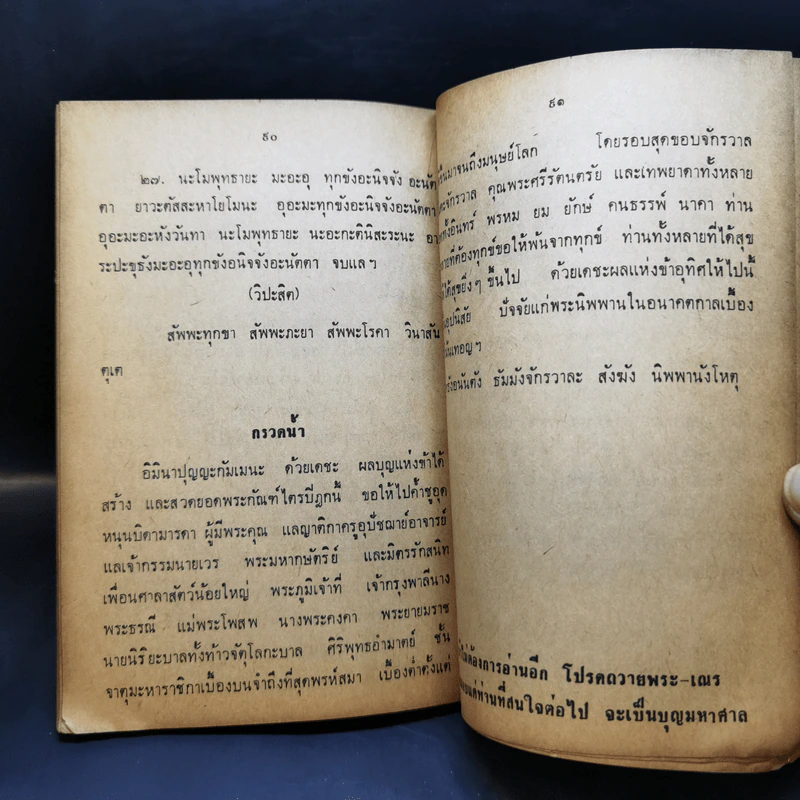 ๙๐
๒๗. นะโมพุทธายะ มะอะอุ ทุกขังอะนิจจัง อะนัต
ตา ยาวะตัสสะหาโยโมนะ อุอะมะทุกขังอะนิจจังอะนัตตา
อุอะมะอะหังวันทา นะโมพุทธายะ นะอะกะตินิสะระนะ อา
ระปะขุธังมะอะอุทุกขังอนิจจังอะนัตตา จบแลฯ
(วิปะสิต)
สัพพะทุกขา สัพพะภะยา สัพพะโรคา วินาสัน
ตุเต
กรวดน้ำ
อิมินาปุญญะกัมเมนะ ด้วยเดชะ ผลบุญแห่งข้าได้
สร้าง และสวดยอดพระกัณฑ์ไตรปีฎกนี้ ขอให้ไปค้ำชูอุด
หนุนบิดามารดา ผู้มีพระคุณ แลญาติกาครูอุปัชฌาย์อาจารย์
แลเจ้ากรรมนายเวร พระมหากษัตริย์ และมิตรรักสนิท
เพื่อนศาลาสัตว์น้อยใหญ่ พระภูมิเจ้าที่ เจ้ากรุงพาลีนาง
พระธรณี แม่พระโพสพ นางพระคงคา พระยายมราช
นายนิริยะบาลทั้งท้าวจัตุโลกะบาล ศิริพุทธอำมาตย์ ชั้น
จาตุมะหาราชิกาเบื้องบนจำถึงที่สุดพรห์สมา เบื้องต่ำตั้งแต่
๙๑
ขึ้นมาจนถึงมนุษย์โลก โดยรอบสุดขอบจักรวาล
จักรวาล คุณพระศรีรัตนตรัย และเทพยาดาทั้งหลาย
ทั้งอินทร์ พรหม ยม ยักษ์ คนธรรพ์ นาคา ท่าน
ที่ต้องทุกข์ขอให้พ้นจากทุกข์ ท่านทั้งหลายที่ได้สุข
ได้สุขยิ่งๆ ขึ้นไป ด้วยเดชะผลแห่งข้าอุทิศให้ไปนี้
อุปนิสัย ปัจจัยแก่พระนิพพานในอนาคตกาลเบื้อง
เทอญฯ
อนันตัง ธัมมังจักรวาละ สังฆัง นิพพานังโหตุ
ไม่ต้องการอ่านอีก โปรดถวายพระ-เณร
แด่ท่านที่สนใจต่อไป จะเป็นบุญมหาศาล